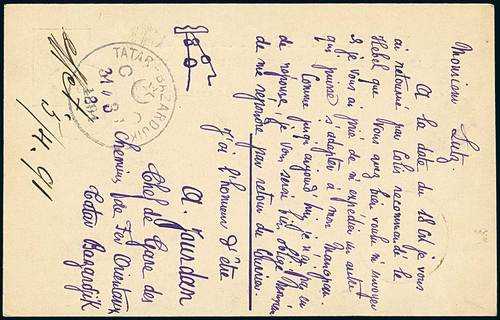 Monsieur Lutz
A la date du 18 Ct je vous
ai retourné par Colis recommandé le
que vous avez bien voulu m'envoyer
& je vous ai prié de m'expédier un autre
qui puisse s'adapter à mon
Comme jusqu'aujourd'hui je n'ai pas eu
de reponse, je vous serai bien obligé
de me repondre par retour du Courrier.
J'ai l'honneur d'être
A. Jourdan
Chef de Gare des
Chemins de Fer Orientaux
Tatar Bazardjik
TATAR-BAZARDJIK
31
5/4.91